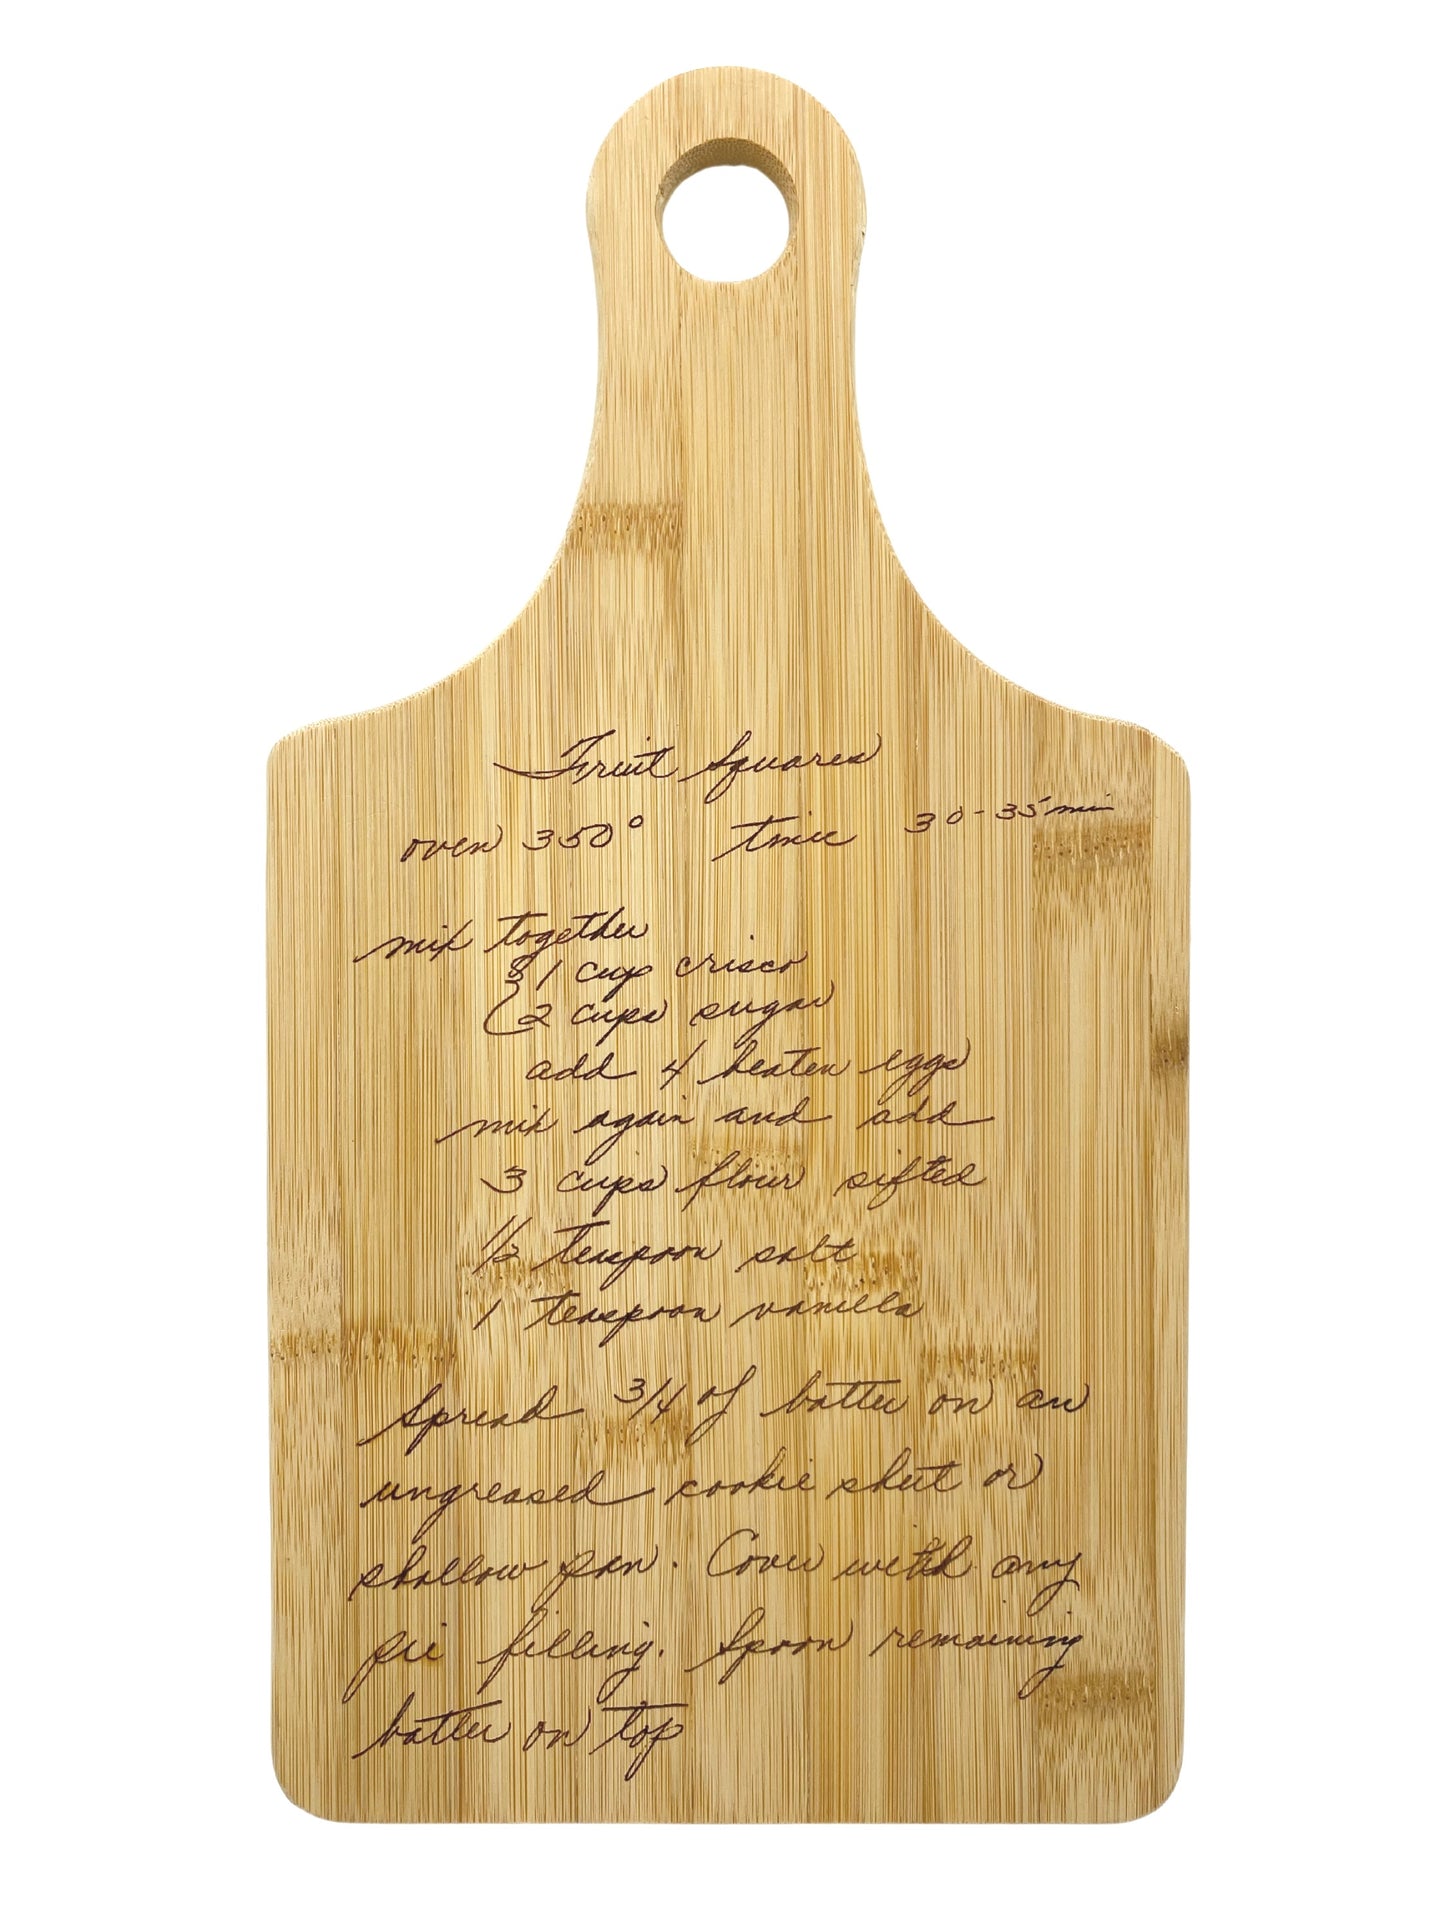 Fruit Squares
oven 350° time 30-35 min
mix together
1 cup crisco
2 cups sugar
add 4 beaten eggs
mix again and add
3 cups flour sifted
1/2 teaspoon salt
1 teaspoon vanilla
Spread 3/4 of batter on an
ungreased cookie sheet or
shallow pan. Cover with any
pie filling. Spoon remaining
batter on top